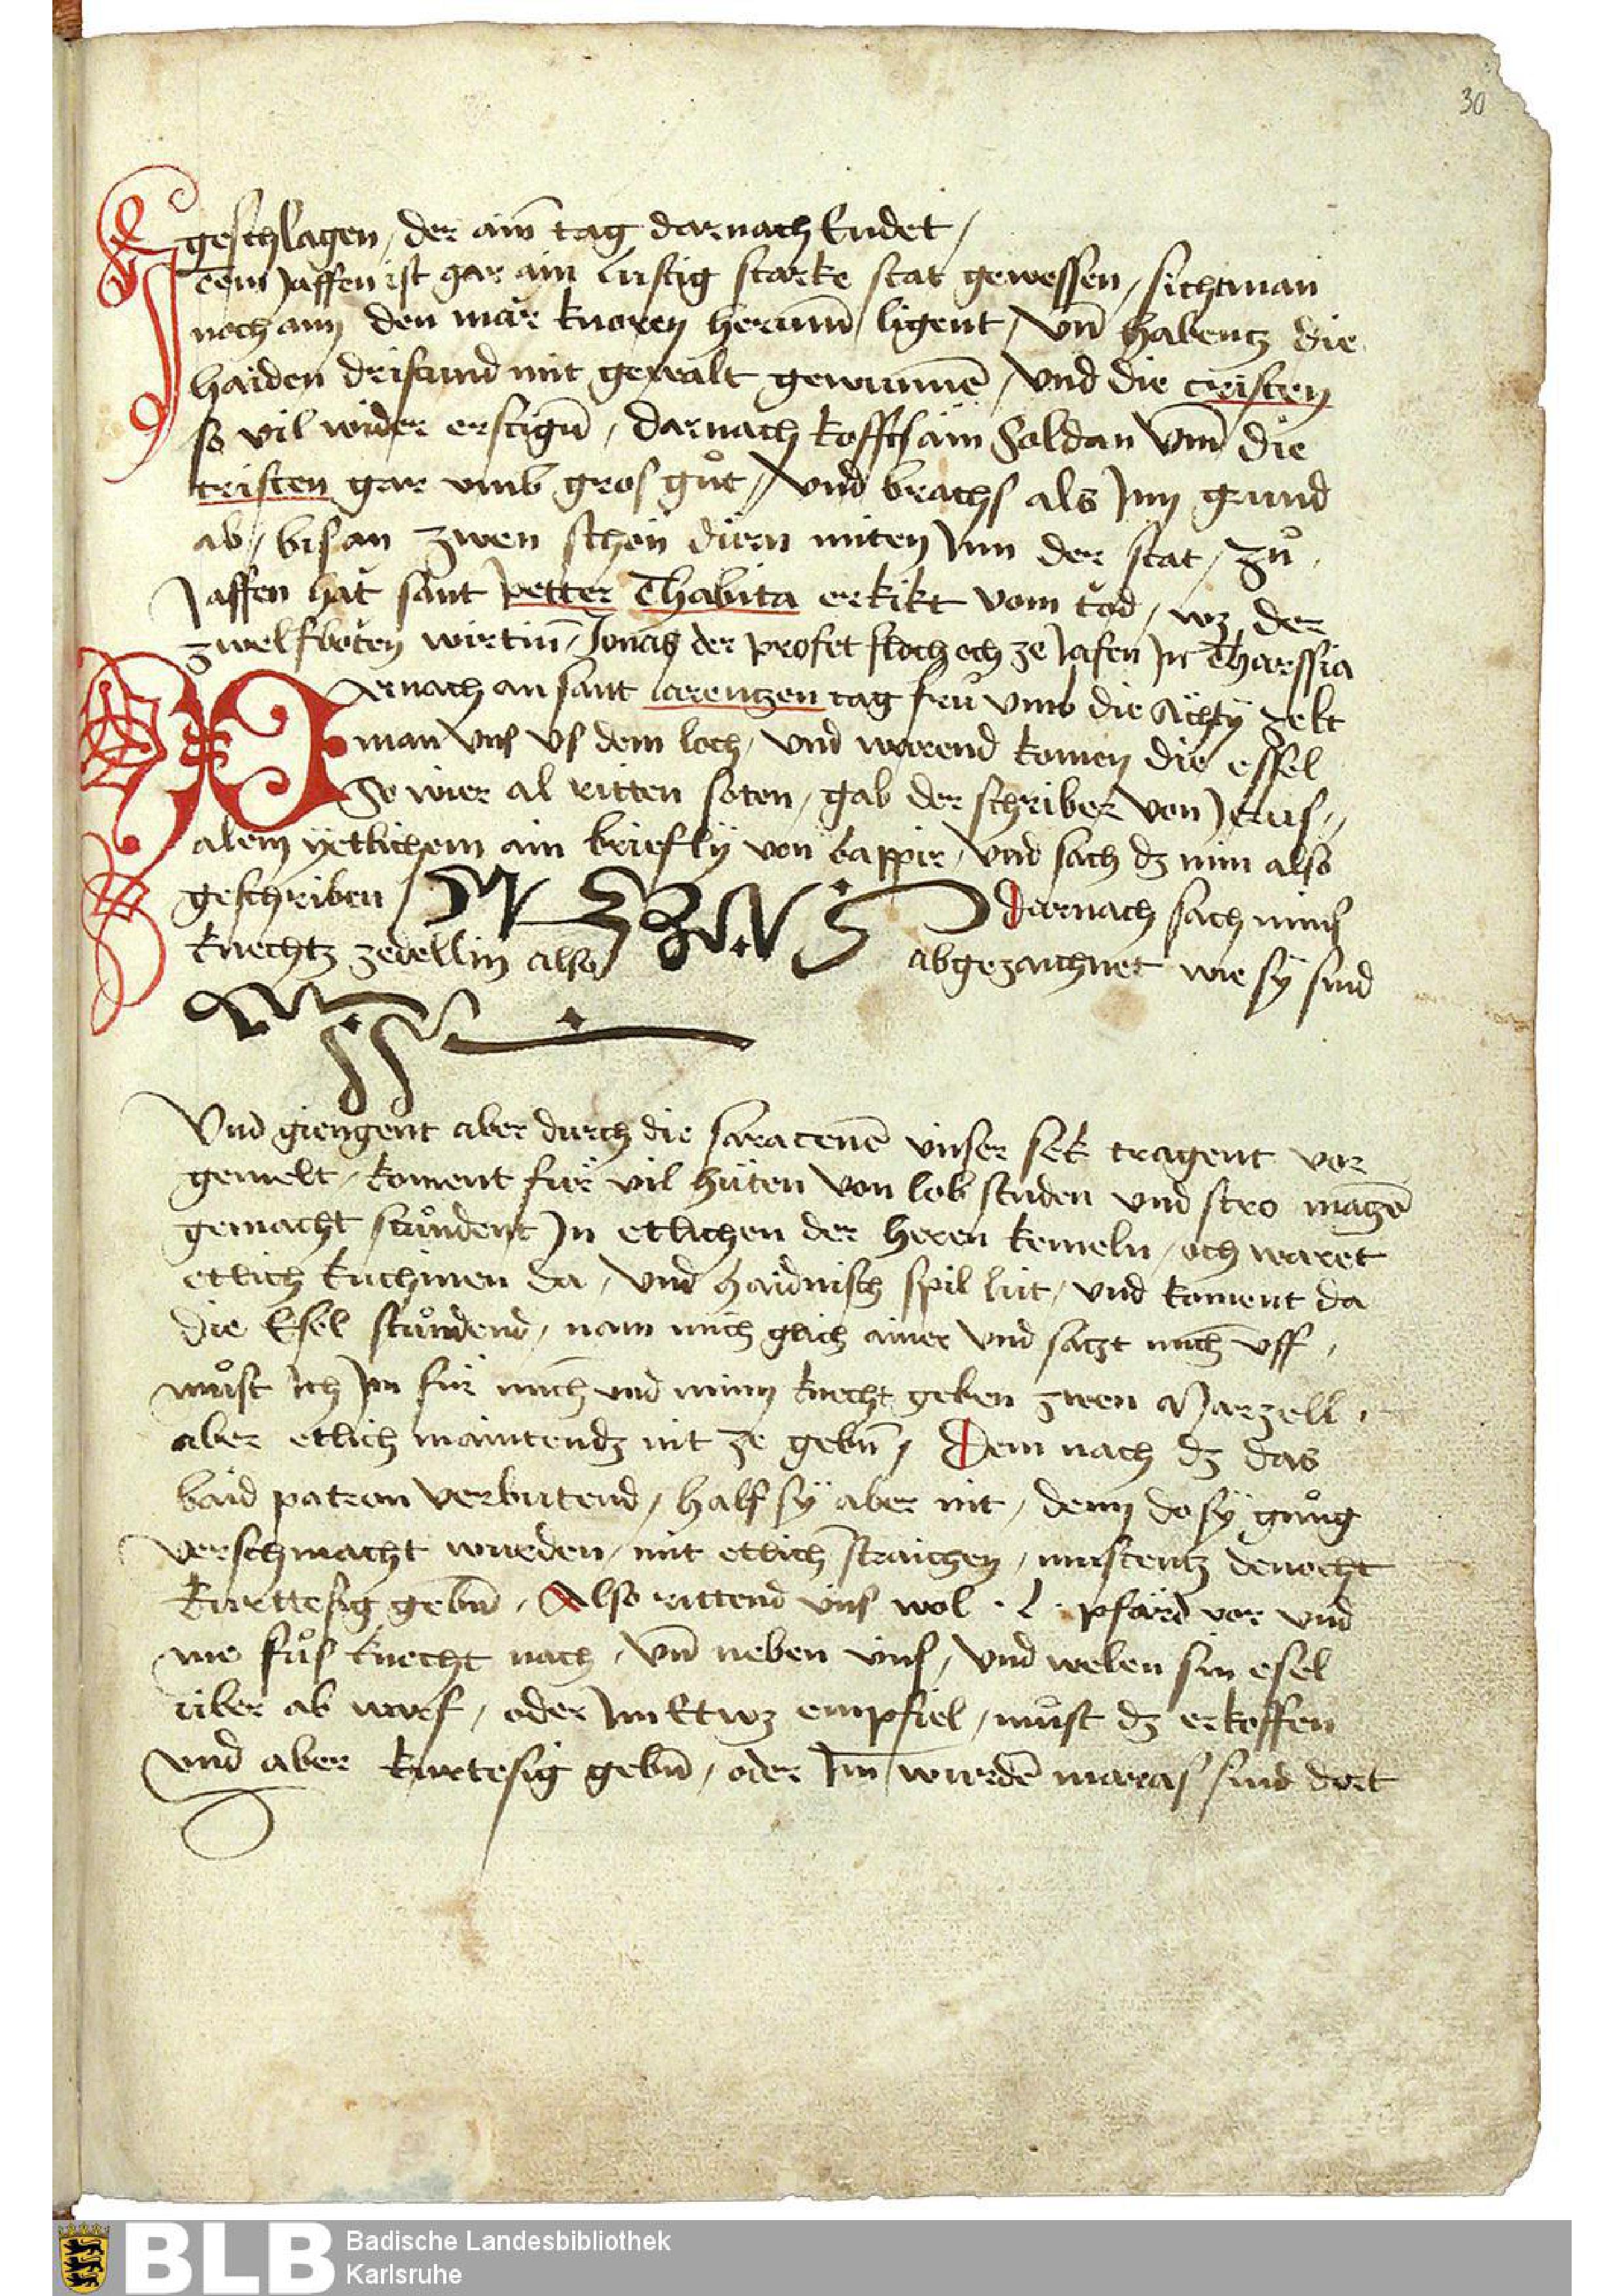 30
geschlagen, der aīn tag darnach Endet /
Item Jaffen ist gar ain lustig starke stat gewessen / sicht man
noch ann den mär knoren herumb ligent / Vn̄ habentz die
haiden dristund mit gewalt gewunnē / Vnd die cristen
so vil wider erstign̄ / darnach kofftz ain Soldan Vm̄ die
cristen gar vmb gros gůt / Vnd brachs als Jnn grund
ab / bis an zwen schön dürn miten Jnn der stat / zů
Jaffen hat sant petter Thabita erkikt vom tod / wz der
zwelfboten wirtin̄ / Jonas der profet floch och ze Jafen Jn Tharssia
Darnach an sant larentzen tag frü vmb die Achty zelt
man vns vs dem loch / Vnd warend komen die essel
So wier al ritten soten / gab der schriber von Jerus„
alem yetlichem ain brieflÿ von bappir / Vnd sach dz min also
geschriben / Darnach sach mins
knechtz zedellin also / abgezaichnet wie sÿ sind
Vnd giengent aber durch die saracenē vnser sek tragent vor
gemelt / koment für vil hüten von lob studen vnd stro matzē
gemacht stůndent Jn etlichen der heren kemeln / och waret
etlich kuchinen da / Vnd haidnisch spil lüt / vnd koment da
die Esel stůndend / nam mich glich ainer vnd satzt mich vff /
můst ich Jm für mich vnd minn knecht geben zwen Marzell /
aber etlich maintendz nit ze gebn̄ / Dem nach dz das
baid patron verbutend / half sÿ aber nit / denn do sÿ gnůg
verschmacht wurden / mit etlich straichen / mustentz denocht
kurttesig gebn̄ / Also rittend vns wol · L · pfärd vor vnd
me fůs knecht nach / Vn̄ neben vns / Vnd welen sin esel
über ab warf / oder Jm Etwz empfiel / můst dz er koffen
vnd aber kurtesig gebn̄ / oder Jm wurdē maras sind dort
BLB Badische Landesbibliothek
Karlsruhe